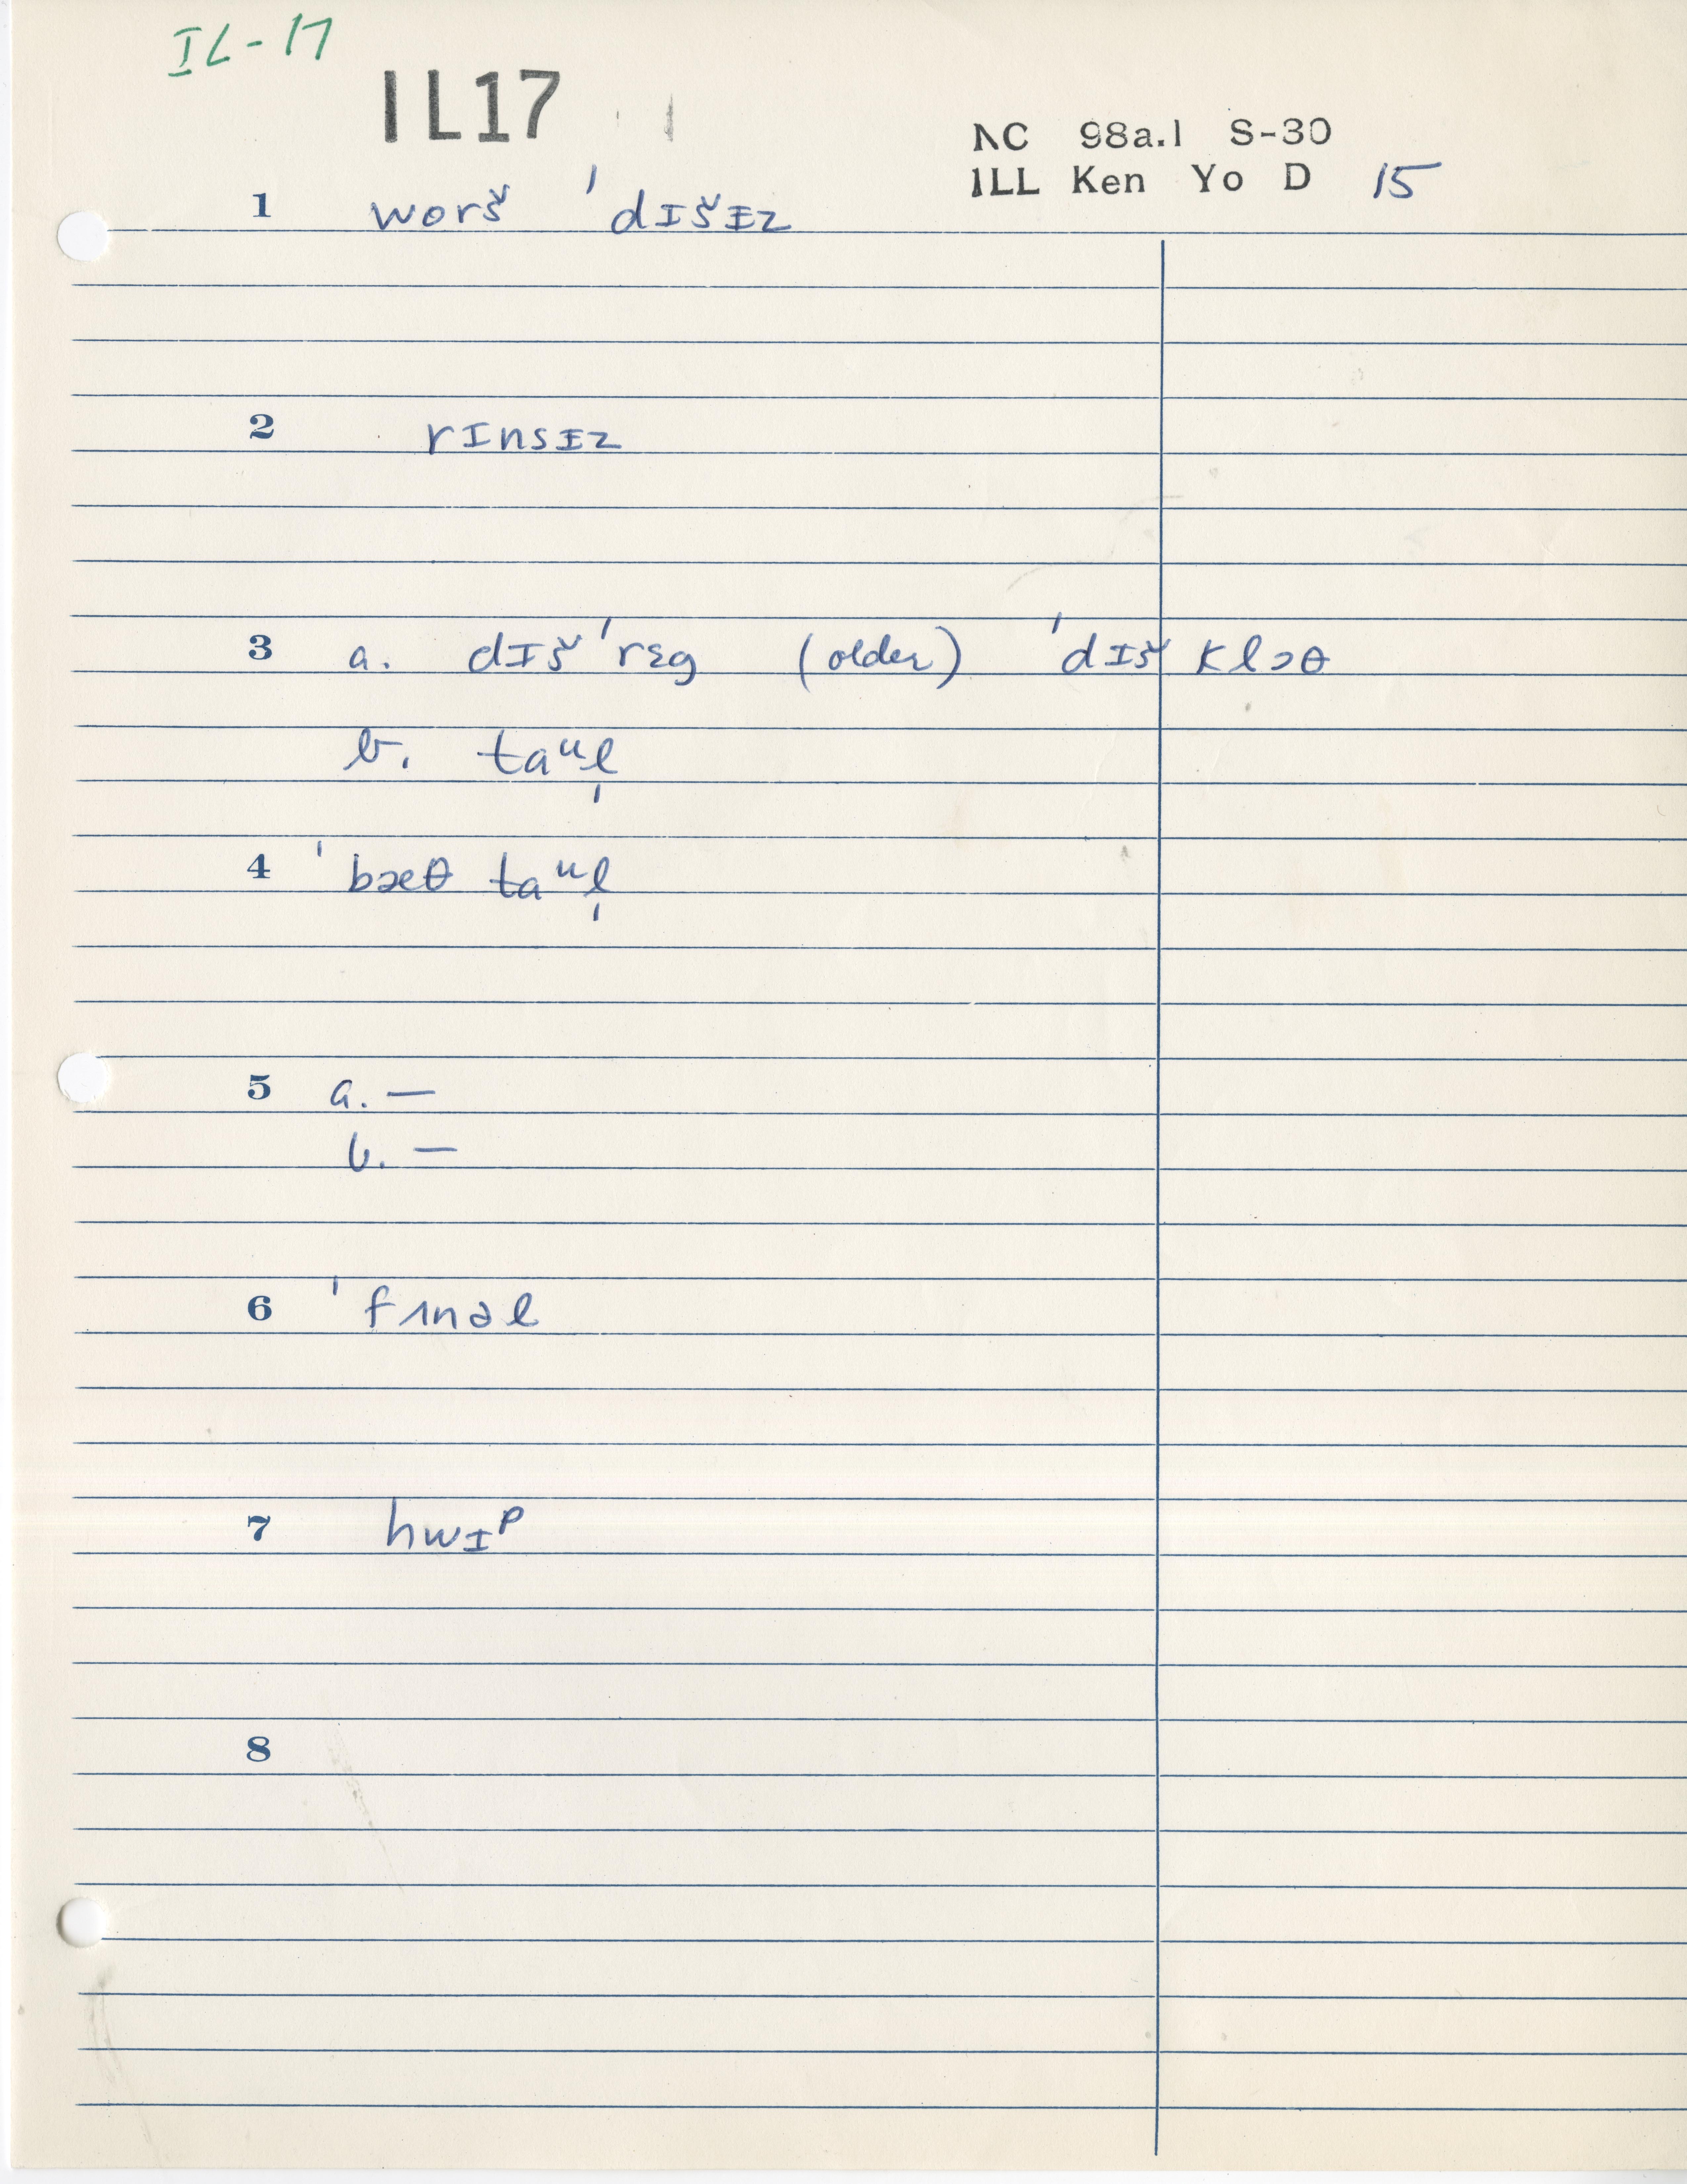 IL-17
IL17
NC 98a.1 S-30
ILL Ken Yo D 15
1 worš ˈdɪšɪz
2 rɪnsɪz
3 a. dɪš ˈrɛg (older) ˈdɪš klɔθ
b. taᵘl̩
4 ˈbæθ taᵘl̩
5 a. —
b. —
6 ˈfʌnəl
7 hwɪᵖ
8